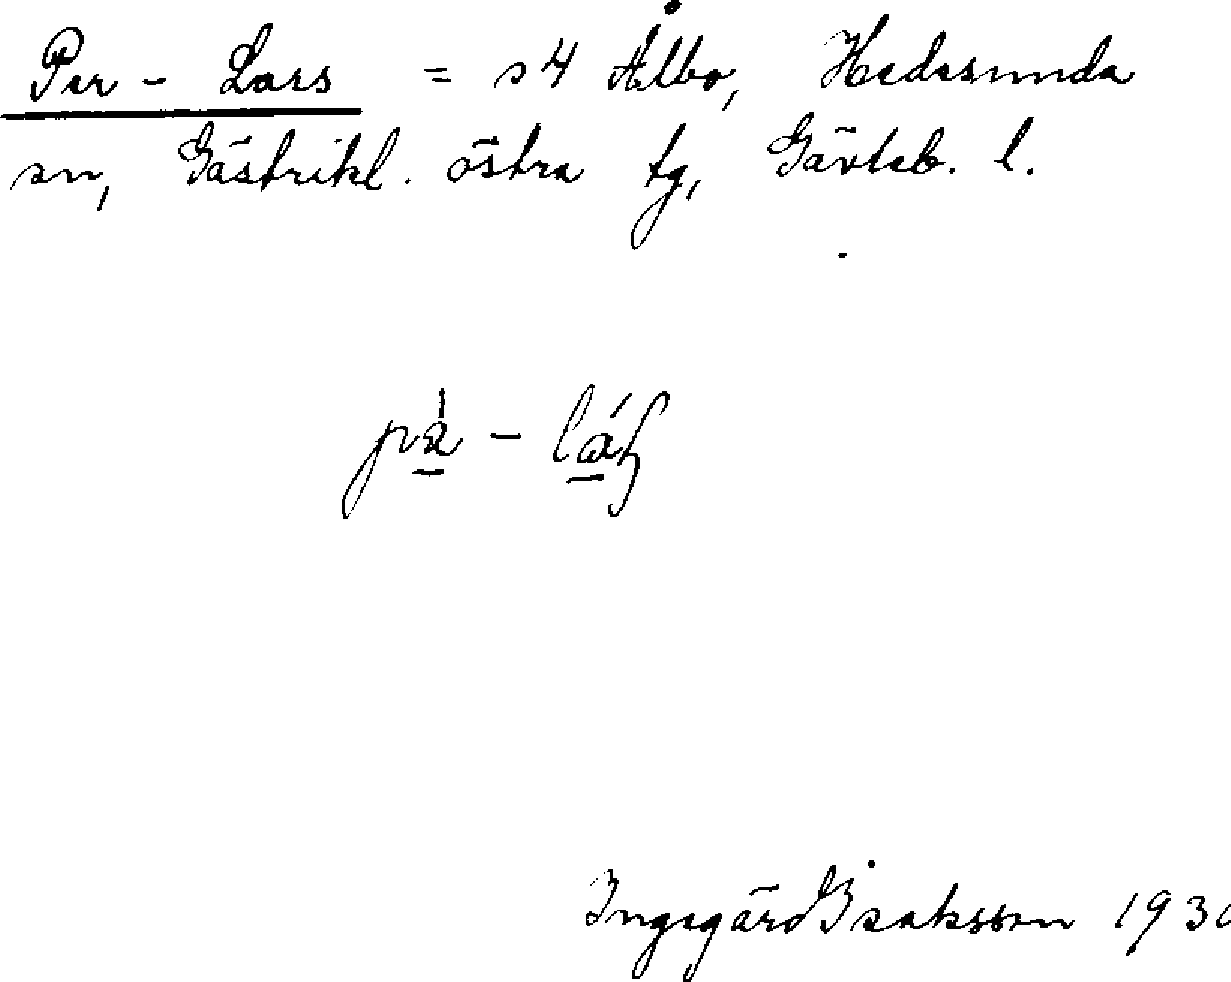 Per - Lars = s4 Ålbo, Hedesunda
sn, Gästrikl. östra tg, Gävleb. l.
Ingegärd Isaksson